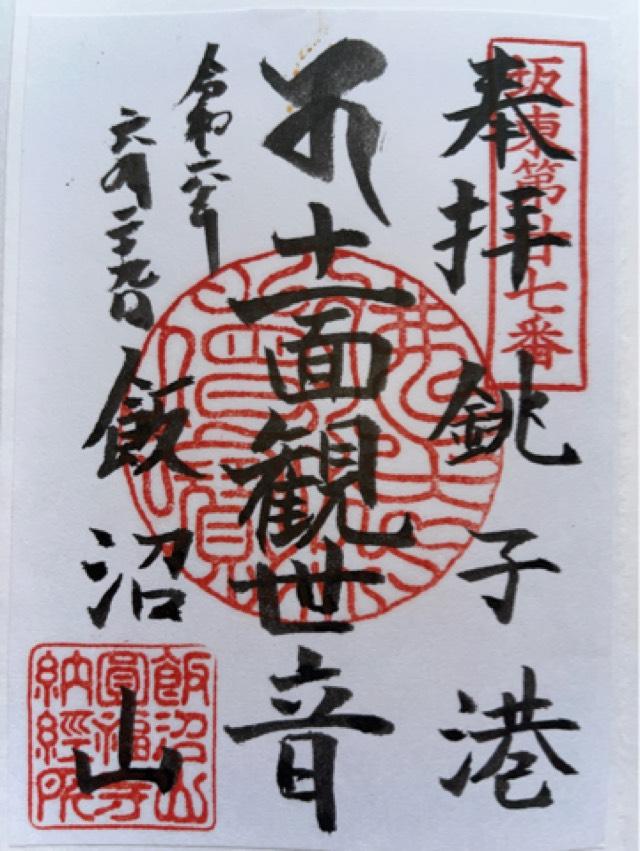 坂東第廿七番
奉拝
銚子港
十一面観世音
令和六年
六月二十九日
飯沼山
飯沼山
圓福寺
納経所